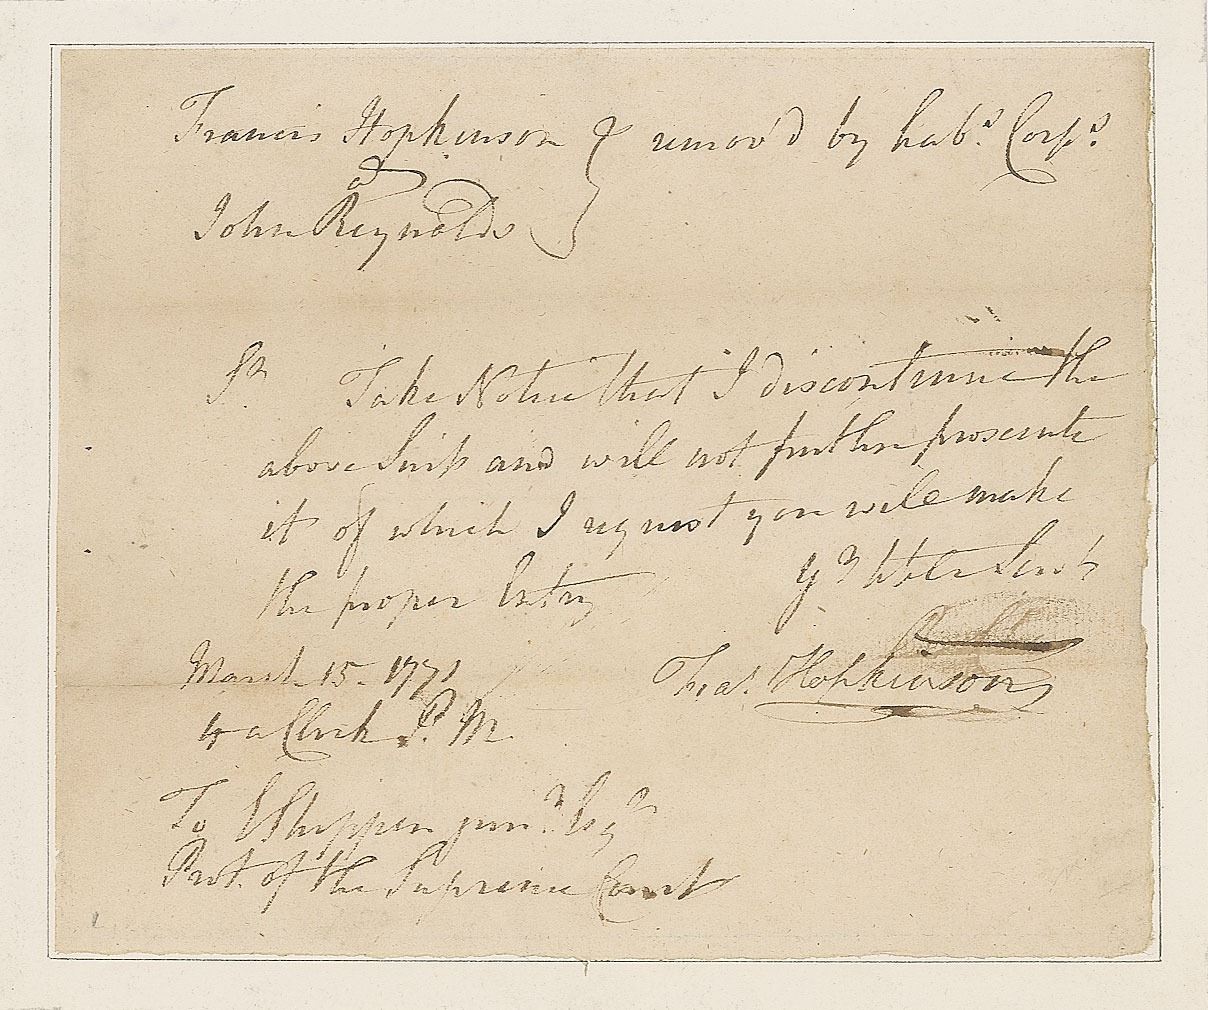 Francis Hopkinson } remov'd by hab.s Corp.s
a
John Reynolds
Sr. Take Notice that I discontinue the
above Suit and will not further prosecute
it of which I request you will make
the proper Entry yr hble Servt
March 15. 1771 Fras. Hopkinson
4 a Clock P. M.
To E Shippen junr. Esqr
Prot. of the Supreme Court